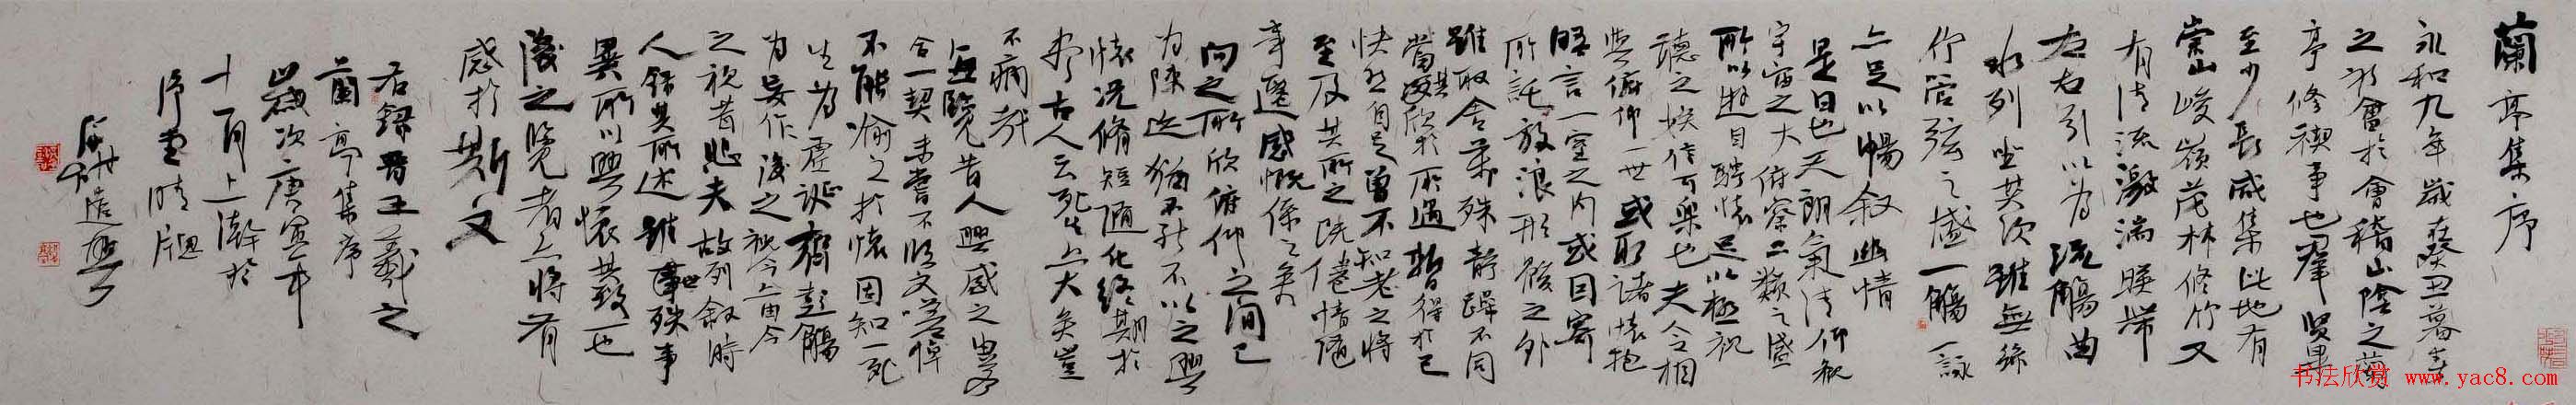 蘭亭集序
永和九年歲在癸丑暮春
之初會於會稽山陰之蘭
亭修禊事也羣賢畢
至少長咸集此地有
崇山峻嶺茂林修竹又
有清流激湍暎帶
左右引以為流觴曲
水列坐其次雖無絲
竹管弦之盛一觴一詠
亦足以暢叙幽情
是日也天朗氣清仰觀
宇宙之大俯察品類之盛
所以遊目騁懷足以極視
聽之娛信可樂也夫人之相
與俯仰一世或取諸懷抱
晤言一室之內或因寄
所託放浪形骸之外
雖取舍萬殊靜躁不同
當其欣於所遇暫得於己
快然自足曾不知老之將
至及其所之既倦情隨
事遷感慨係之矣
向之所欣俯仰之間已
為陳迹猶不能不以之興
懷況脩短隨化終期於
盡古人云死生亦大矣豈
不痛哉
每覽昔人興感之由若
合一契未嘗不臨文嗟悼
不能喻之於懷固知一死
生為虛誕齊彭殤
為妄作後之視今亦由今
之視昔悲夫故列叙時
人錄其所述雖世殊事
異所以興懷其致一也
後之覽者亦將有
感於斯文
右錄晉王羲之
蘭亭集序
歲次庚寅年
十一月上澣於
晴牕
書法欣赏 www.yac8.com